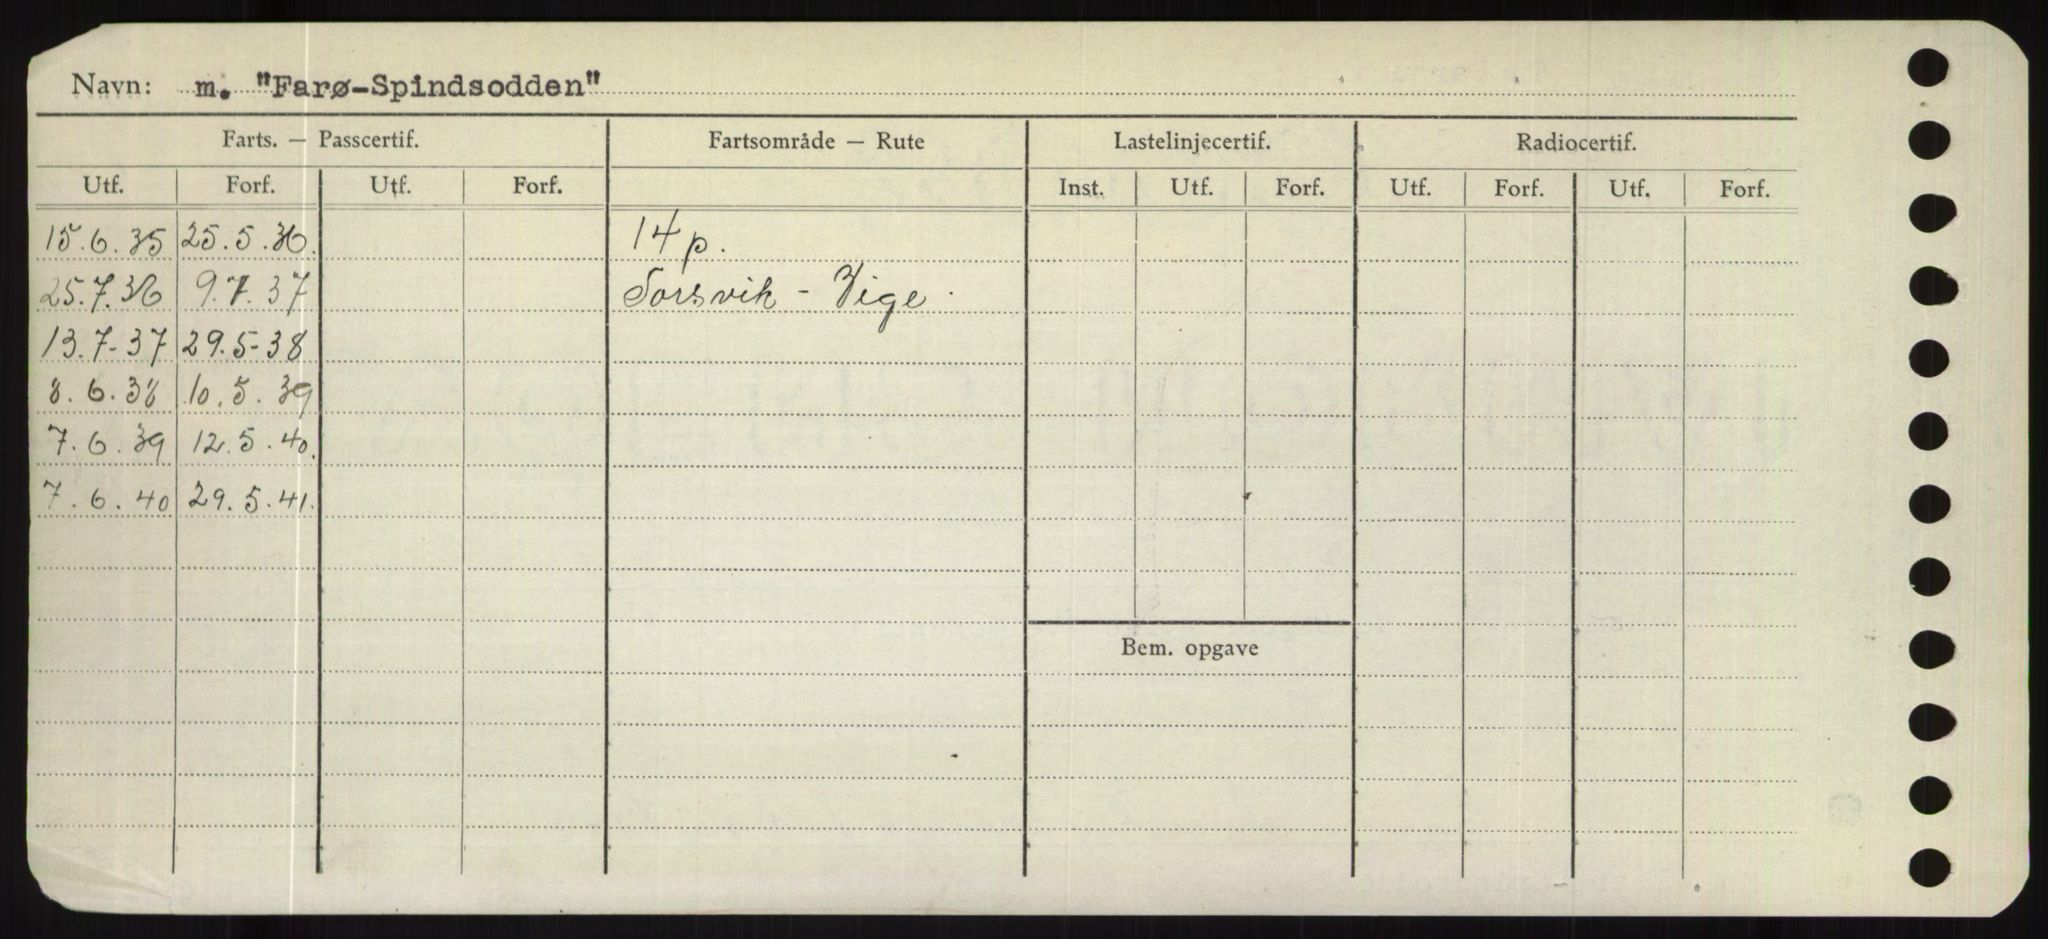 Navn: m. "Farø-Spindsodden"
Farts. — Passcertif. Fartsområde — Rute Lastelinjecertif. Radiocertif.
Utf. Forf. Utf. Forf. Inst. Utf. Forf. Utf. Forf. Utf. Forf.
15.6.35 25.5.36. 14 p.
25.7.36 9.7.37 Torsvik - Vige.
13.7-37 29.5-38
8.6.38 10.5.39
7.6.39 12.5.40.
7.6.40 29.5.41.
Bem. opgave